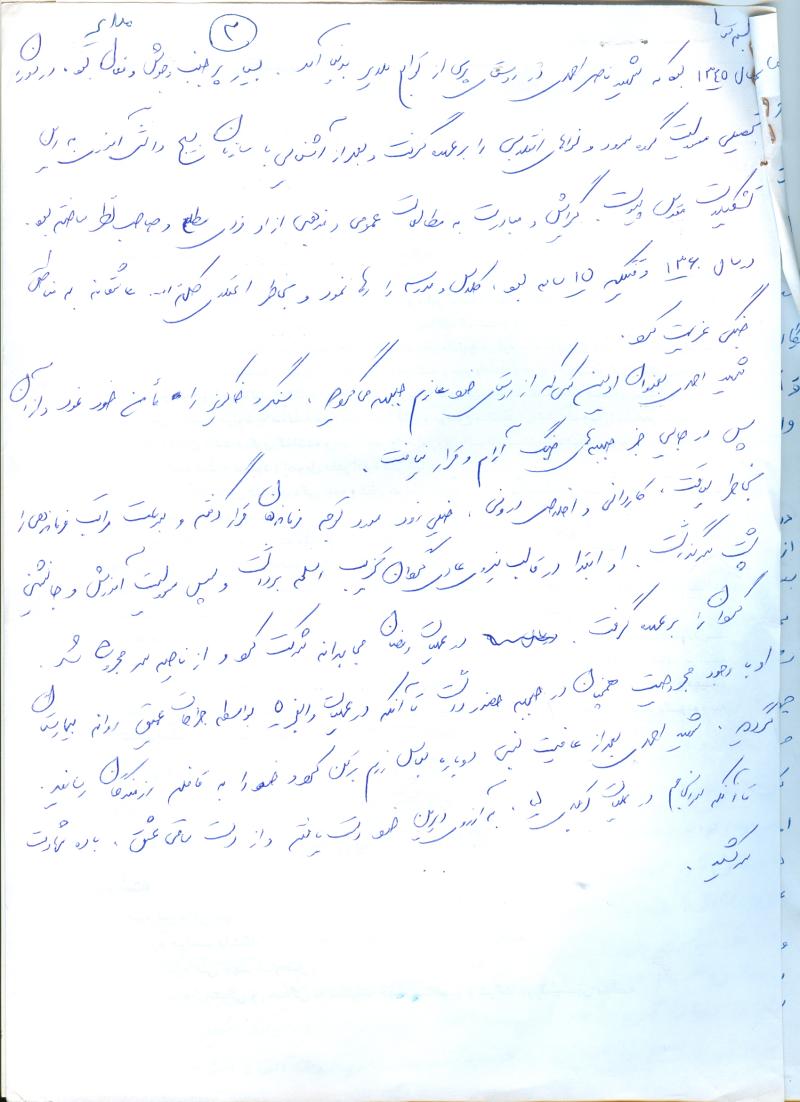 ۳
ملایر
سال ۱۳۴۵ بود که شهید ناصر احمدی در روستای پری از توابع ملایر بدنیا آمد. بسیار پر جنب وجوش و فعال بود. در دوران
تحصیلی مسئولیت گروه سرود و نواهای انقلابی را برعهده گرفت و بعد از آشنایی با سازمان بسیج دانش آموزی به این
تشکیلات مقدس پیوست. گرایش و مبادرت به مطالعات عمومی و مذهبی از او فردی مطلع و صاحب نظر ساخته بود.
در سال ۱۳۶۰ وقتیکه ۱۵ ساله بود، کلاس و مدرسه را رها نمود و بخاطر اعتلای کلمة ا... عاشقانه به مناطق
جنگی عزیمت کرد.
شهید احمدی بعنوان اولین کسی که از روستای خود عازم جبهه می‌گردید، سنگر و خاکریز را مأمن خود نمود و از آن
پس در جایی جز جبهه‌های جنگ آرام و قرار نیافت.
بخاطر لیاقت، کاردانی و اخلاص درونی، خیلی زود مورد توجه فرماندهان قرار گرفته و بسرعت مراتب فرماندهی را
پشت سرگذاشت. او ابتدا در قالب نیروی عادی گردان تخریب اسلحه برداشت و سپس مسئولیت آموزش و جانشینی
گردان را برعهده گرفت. در عملیات رمضان مجاهدانه شرکت کرد و از ناحیه سر مجروح شد.
او با وجود مجروحیت همچنان در جبهه حضور داشت تا آنکه در عملیات والفجر ۵ بواسطه جراحات عمیق روانه بیمارستان
گردید. شهید احمدی بعد از عافیت نسبی دوباره لباس رزم برتن کرد و خود را به قافله رزمندگان رسانید.
تا آنکه سرانجام در عملیات کربلای ۵، به آرزوی دیرین خود دست یافته و از دست ساقی عشق، باده شهادت
سرکشید.